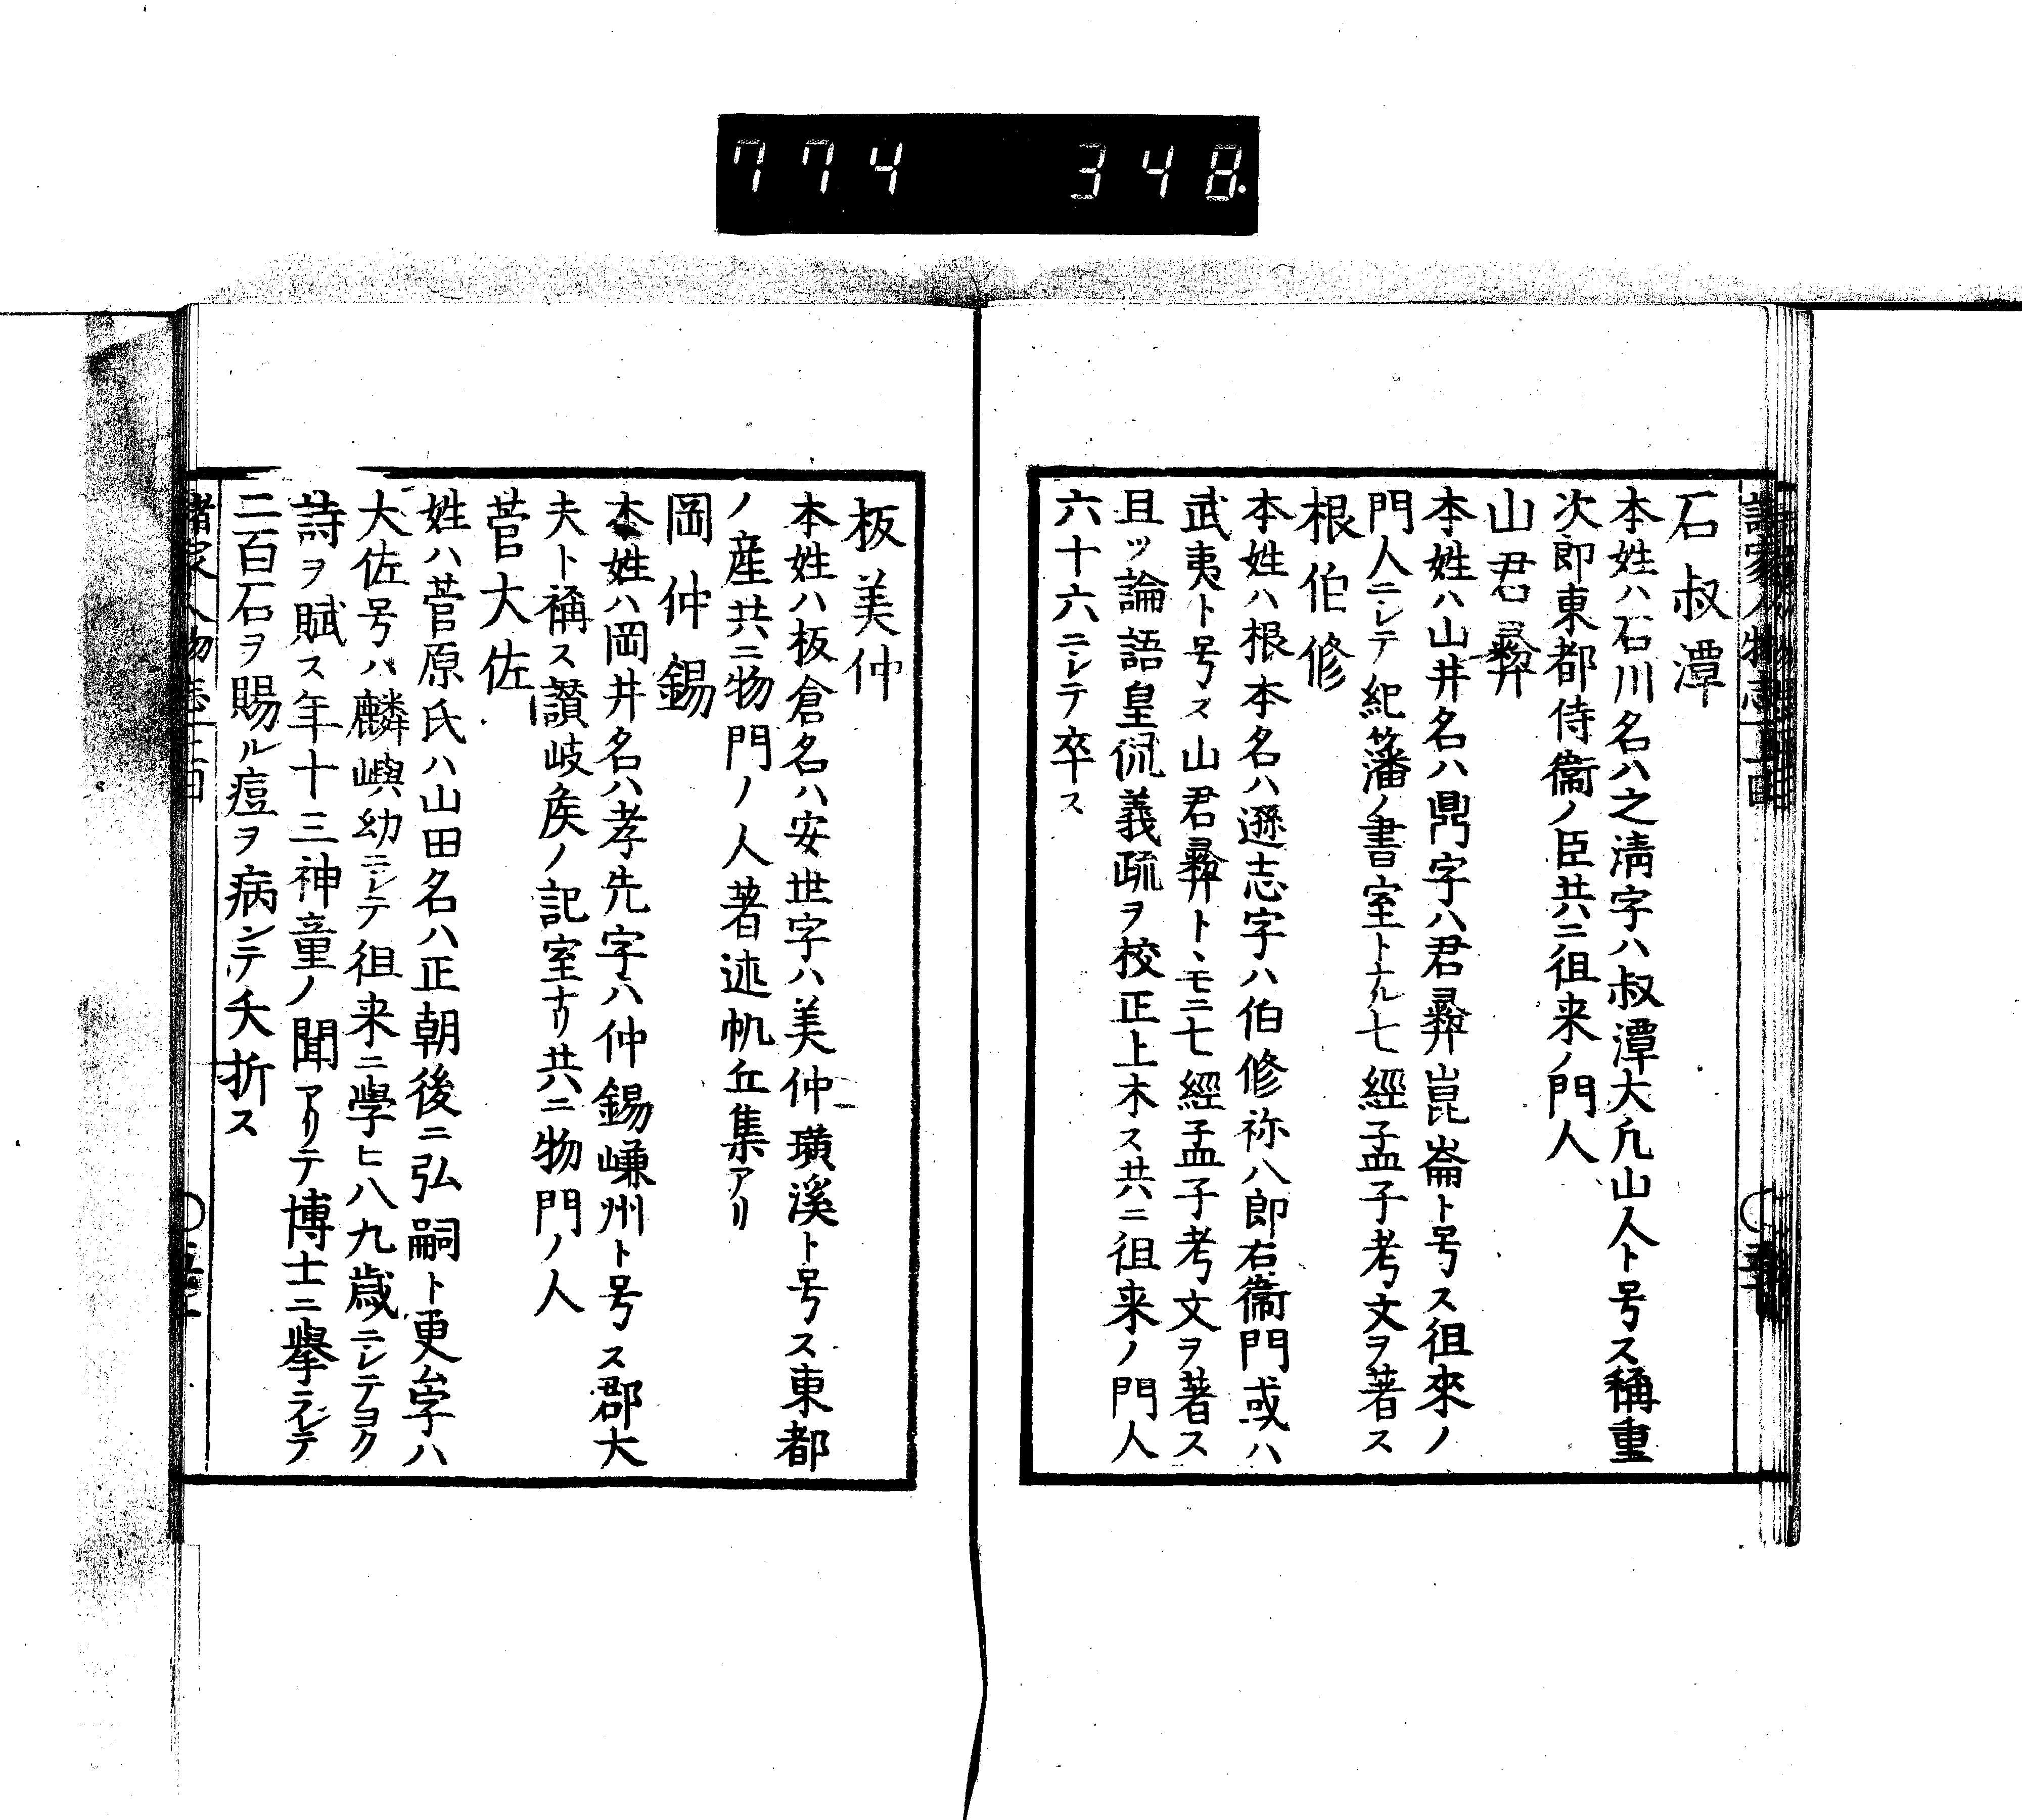 774 348.
石叔潭
本姓ハ石川名ハ之清字ハ叔潭大凢山人ト号ス稱重
次郎東都侍衞ノ臣共ニ徂来ノ門人
山君彞
本姓ハ山井名ハ鼎字ハ君彞崑崙ト号ス徂來ノ
門人ニシテ紀藩ノ書室トナル七經孟子考文ヲ著ス
根伯修
本姓ハ根本名ハ遜志字ハ伯修称八郎右衞門或ハ
武夷ト号ス山君彞トヽモニ七經孟子考文ヲ著ス
且ツ論語皇侃義疏ヲ校正上木ス共ニ徂来ノ門人
六十六ニシテ卒ス
板美仲
本姓ハ板倉名ハ安世字ハ美仲璜溪ト号ス東都
ノ産共ニ物門ノ人著述帆丘集アリ
岡仲錫
本姓ハ岡井名ハ孝先字ハ仲錫嵰州ト号ス郡大
夫ト稱ス讃岐矦ノ記室ナリ共ニ物門ノ人
菅大佐
姓ハ菅原氏ハ山田名ハ正朝後ニ弘嗣ト更ム字ハ
大佐号ハ麟嶼幼ニシテ徂来ニ學ヒ八九歳ニシテヨク
詩ヲ賦ス年十三神童ノ聞アリテ博士ニ擧ラレテ
二百石ヲ賜ル痘ヲ病ンテ夭折ス
諸家人物志